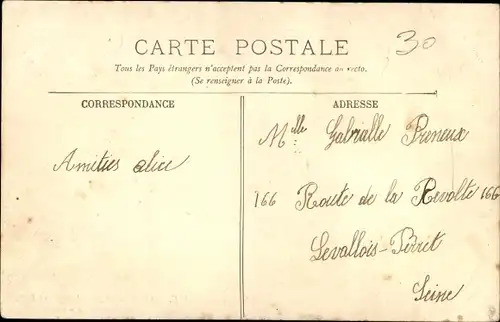 CARTE POSTALE
30
Tous les Pays étrangers n'acceptent pas la Correspondance au recto.
(Se renseigner à la Poste).
CORRESPONDANCE
ADRESSE
Mlle Gabrielle Preneux
Amities alice
166 Route de la Revolte 166
Levallois-Perret
Seine